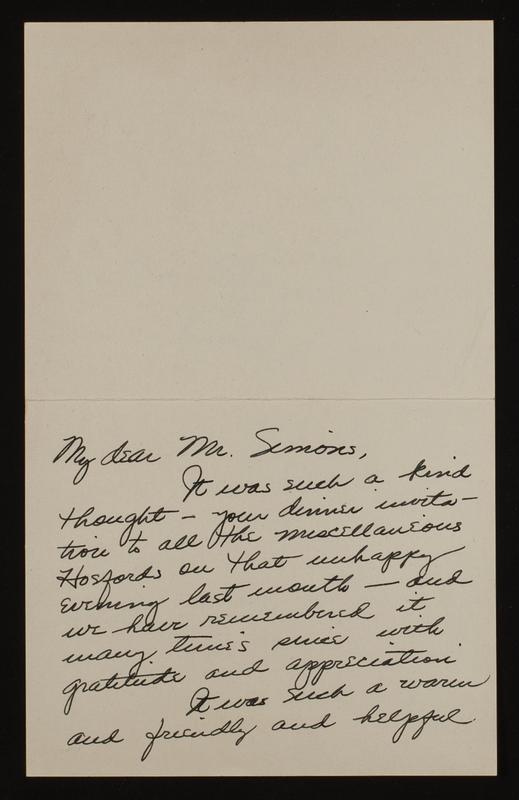 My dear Mr. Simons,
It was such a kind
thought – your dinner invita-
tion to all the miscellaneous
Hosfords on that unhappy
evening last month – and
we have remembered it
many times since with
gratitude and appreciation
It was such a warm
and friendly and helpful